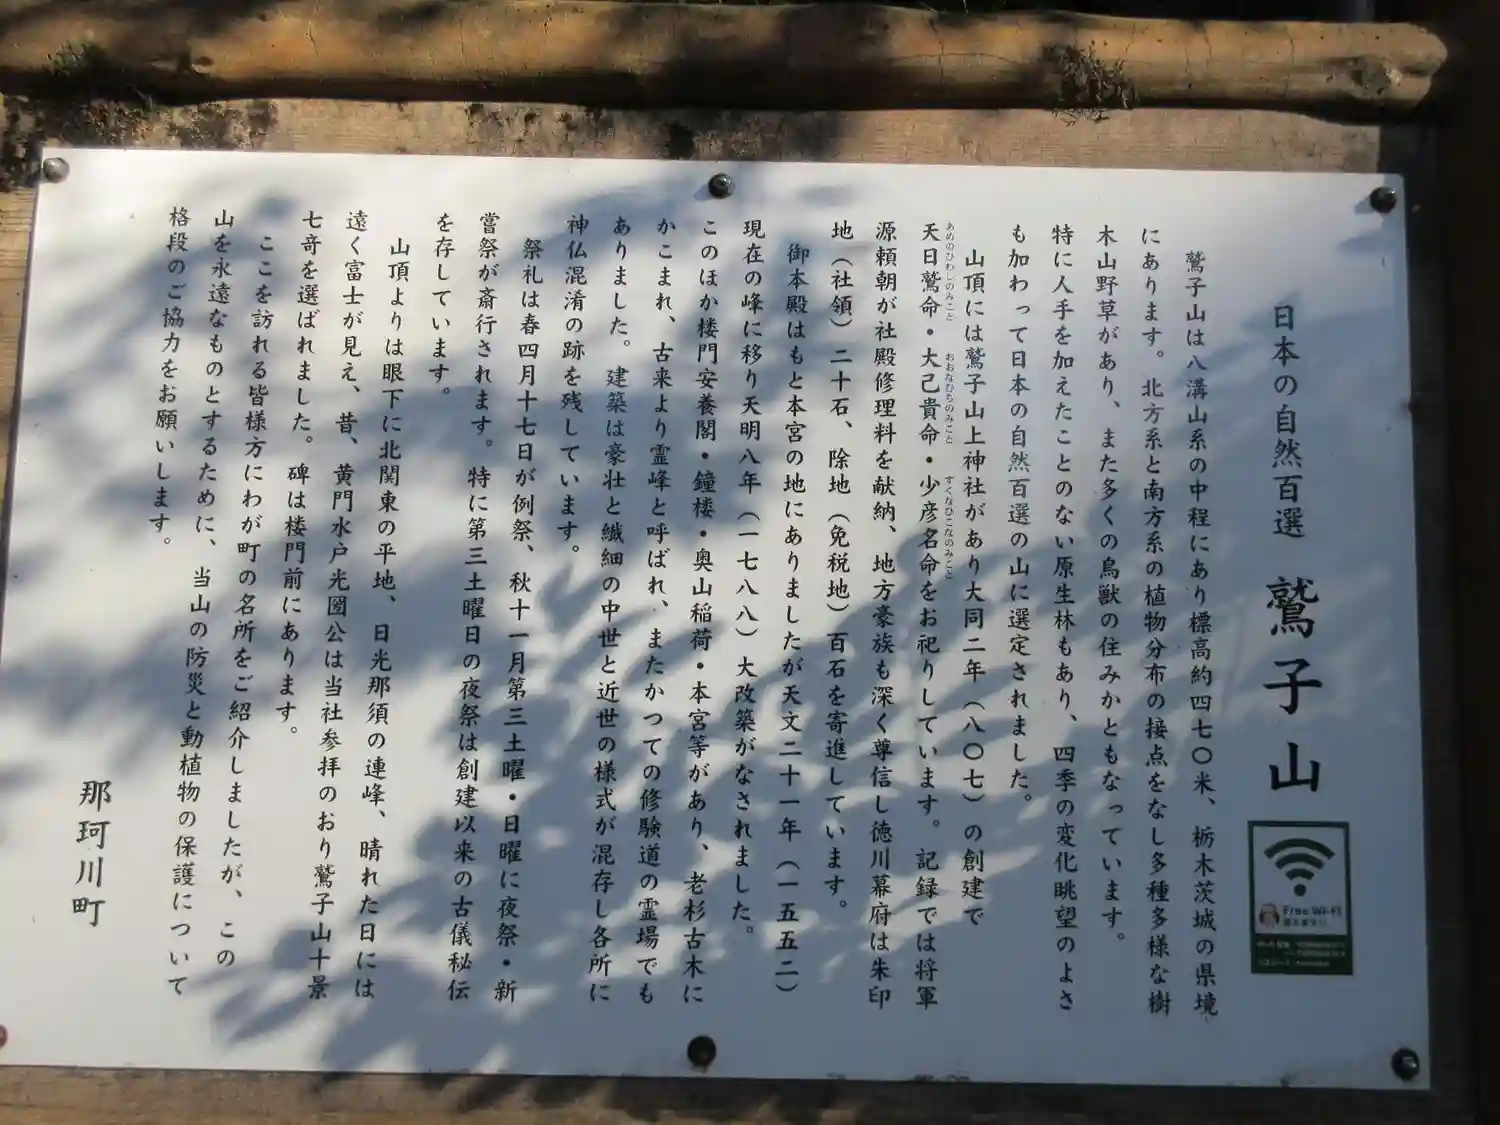 日本の自然百選 鷲子山
鷲子山は八溝山系の中程にあり標高約四七〇米、栃木茨城の県境
にあります。北方系と南方系の植物分布の接点をなし多種多様な樹
木山野草があり、また多くの鳥獣の住みかともなっています。
特に人手を加えたことのない原生林もあり、四季の変化眺望のよさ
も加わって日本の自然百選の山に選定されました。
山頂には鷲子山上神社があり大同二年（八〇七）の創建で
あめのひわしのみこと おおなむちのみこと すくなひこなのみこと
天日鷲命・大己貴命・少彦名命をお祀りしています。記録では将軍
源頼朝が社殿修理料を献納、地方豪族も深く尊信し徳川幕府は朱印
地（社領）二十石、除地（免税地）百石を寄進しています。
御本殿はもと本宮の地にありましたが天文二十一年（一五五二）
現在の峰に移り天明八年（一七八八）大改築がなされました。
このほか楼門安養閣・鐘楼・奥山稲荷・本宮等があり、老杉古木に
かこまれ、古来より霊峰と呼ばれ、またかつての修験道の霊場でも
ありました。建築は豪壮と繊細の中世と近世の様式が混存し各所に
神仏混淆の跡を残しています。
祭礼は春四月十七日が例祭、秋十一月第三土曜・日曜に夜祭・新
嘗祭が斎行されます。特に第三土曜日の夜祭は創建以来の古儀秘伝
を存しています。
山頂よりは眼下に北関東の平地、日光那須の連峰、晴れた日には
遠く富士が見え、昔、黄門水戸光圀公は当社参拝のおり鷲子山十景
七奇を選ばれました。碑は楼門前にあります。
ここを訪れる皆様方にわが町の名所をご紹介しましたが、この
山を永遠なものとするために、当山の防災と動植物の保護について
格段のご協力をお願いします。
那珂川町
Free Wi-Fi